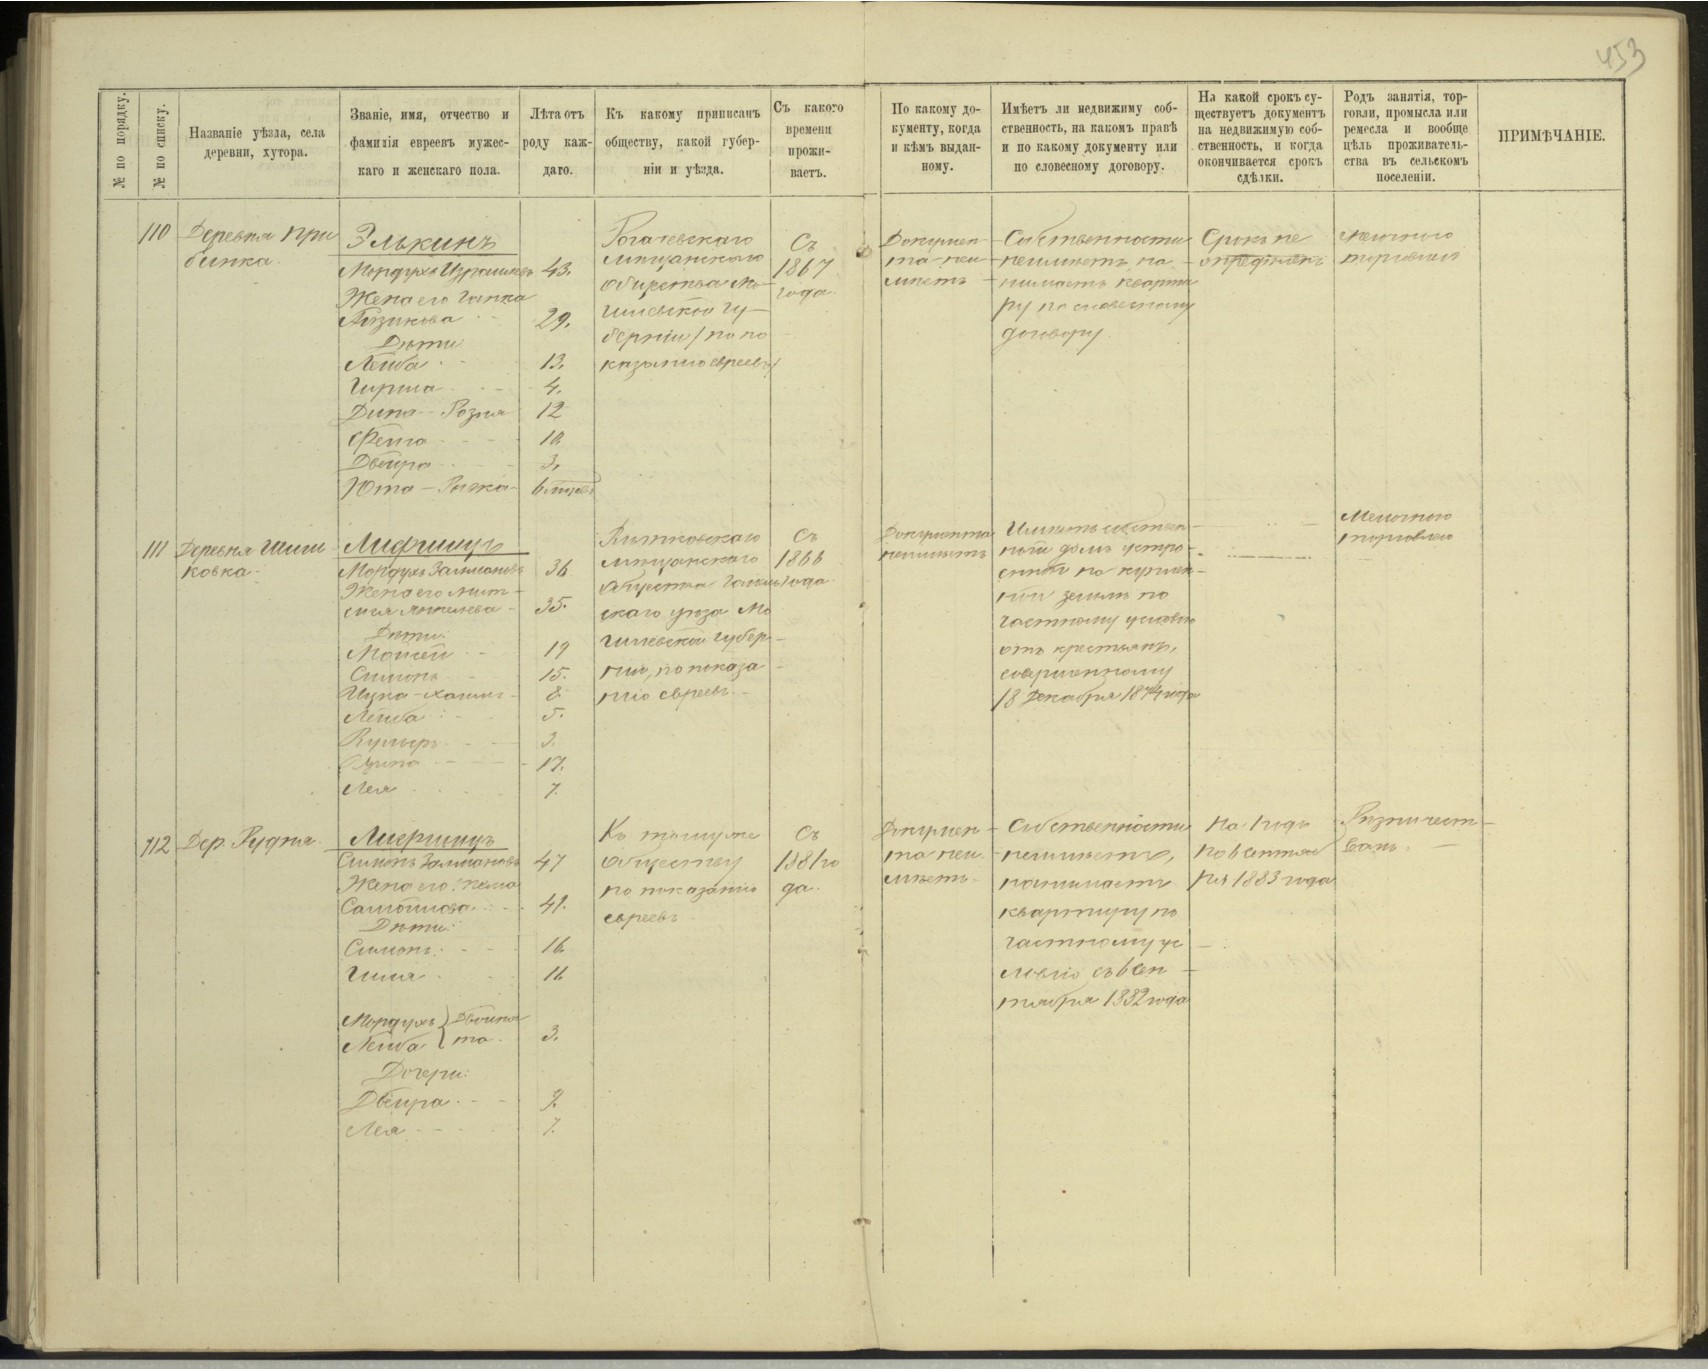 453
№ по порядку.
№ по списку.
Названіе уѣзда, села
деревни, хутора.
Званіе, имя, отчество и
фамилія евреевъ мужес-
каго и женскаго пола.
Лѣта отъ
роду каж-
даго.
Къ какому приписанъ
обществу, какой губер-
ніи и уѣзда.
Съ какого
времени
прожи-
ваетъ.
По какому до-
кументу, когда
и кѣмъ выдан-
ному.
Имѣетъ ли недвижиму соб-
ственность, на какомъ правѣ
и по какому документу или
по словесному договору.
На какой срокъ су-
ществуетъ документъ
на недвижимую соб-
ственность, и когда
окончивается срокъ
сдѣлки.
Родъ занятія, тор-
говли, промысла или
ремесла и вообще
цѣль проживатель-
ства въ сельскомъ
поселеніи.
ПРИМѢЧАНІЕ.
110
Деревня При
бинка.
Элькинъ
Мордухъ
43.
Жена его Ганна
29.
Дѣти
Лейба
13.
Гирша
4.
Дина-Розия
12
Фейга
10
Двейра
3.
Юта-
6
Рогачевскаго
мѣщанскаго
общества Мо-
гилевской гу-
берніи / по по
казанію евреевъ /
Съ
1867
года.
Докумен-
та неи-
мѣетъ
Собственности
неимѣетъ, на-
нимаетъ кварти
ру по словесному
договору.
Срокъ не
опредѣленъ
Мелочною
торговлею
111
Деревня
ковка.
Лифшицъ
Мордухъ Залмановъ
36
Жена его
Янкелева
35.
Дѣти:
Моисей
19
Симонъ
15.
Ицка-Хаимъ
8.
Лейба
5.
3.
17.
Лея
7.
Вѣтковскаго
мѣщанскаго
общества Гомель
скаго уѣзда Мо
гилевской губер-
ніи, по показа
нію евреевъ.
Съ
1866
года.
Документа
неимѣетъ
Имѣетъ собствен-
ной домъ устро-
енный на куплен-
ной землѣ по
частному условію
отъ крестьянъ,
совершенному
18 Декабря 1874 года
Мелочною
торговлею
112
Дер. Рудня.
Лифшицъ
Симонъ Залмановъ
47
Жена его
Самойлова
41.
Дѣти:
Симонъ
16.
11.
Мордухъ } Двойня
Лейба } та.
3.
Дочери:
Двейра
9.
Лея
7.
Къ тому же
обществу
по показанію
евреевъ.
Съ
1881 го
да.
Докумен-
та неи-
мѣетъ.
Собственности
неимѣетъ,
нанимаетъ
квартиру по
частному ус-
ловію съ 6 Сен-
тября 1882 года
На 1 годъ
по 6 Сентяб
ря 1883 года
Рѣзничест-
вомъ.